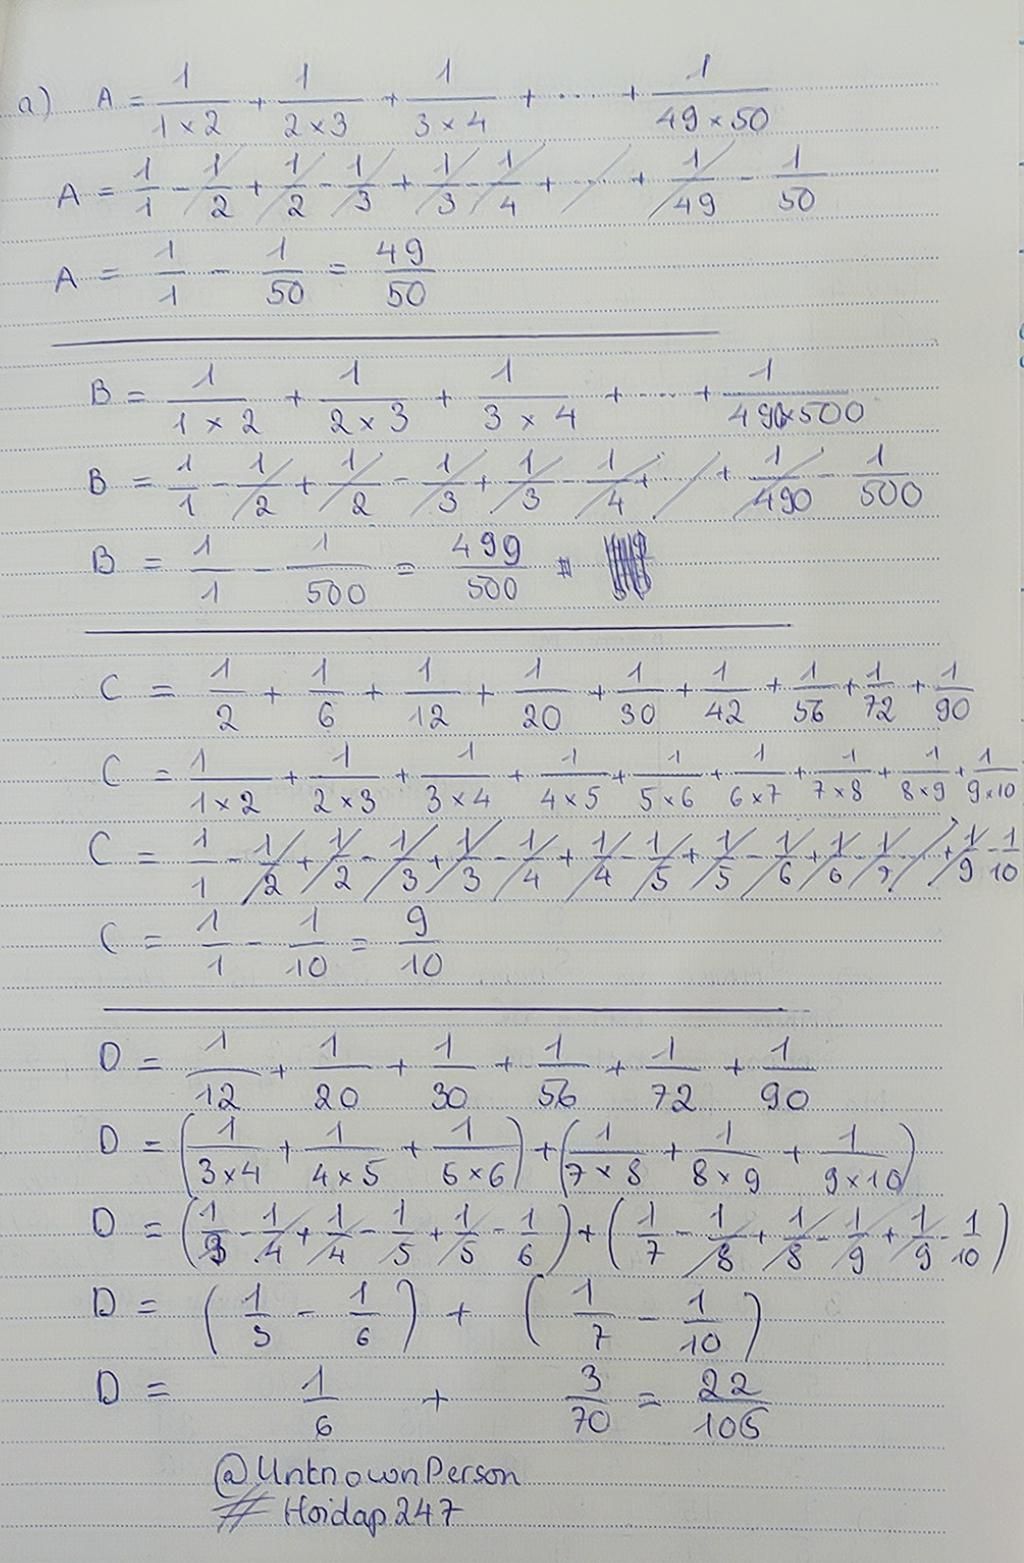 a) A = 1/(1×2) + 1/(2×3) + 1/(3×4) + ..... + 1/(49×50)
A = 1/1 - 1/2 + 1/2 - 1/3 + 1/3 - 1/4 + ..... + 1/49 - 1/50
A = 1/1 - 1/50 = 49/50
B = 1/(1×2) + 1/(2×3) + 1/(3×4) + ..... + 1/(490×500)
B = 1/1 - 1/2 + 1/2 - 1/3 + 1/3 - 1/4 + ..... + 1/490 - 1/500
B = 1/1 - 1/500 = 499/500
C = 1/2 + 1/6 + 1/12 + 1/20 + 1/30 + 1/42 + 1/56 + 1/72 + 1/90
C = 1/(1×2) + 1/(2×3) + 1/(3×4) + 1/(4×5) + 1/(5×6) + 1/(6×7) + 1/(7×8) + 1/(8×9) + 1/(9×10)
C = 1/1 - 1/2 + 1/2 - 1/3 + 1/3 - 1/4 + 1/4 - 1/5 + 1/5 - 1/6 + 1/6 - 1/7 - ... + 1/9 - 1/10
C = 1/1 - 1/10 = 9/10
D = 1/12 + 1/20 + 1/30 + 1/56 + 1/72 + 1/90
D = (1/(3×4) + 1/(4×5) + 1/(5×6)) + (1/(7×8) + 1/(8×9) + 1/(9×10))
D = (1/3 - 1/4 + 1/4 - 1/5 + 1/5 - 1/6) + (1/7 - 1/8 + 1/8 - 1/9 + 1/9 - 1/10)
D = (1/3 - 1/6) + (1/7 - 1/10)
D = 1/6 + 3/70 = 22/105
@UnknownPerson
# Hoidap247